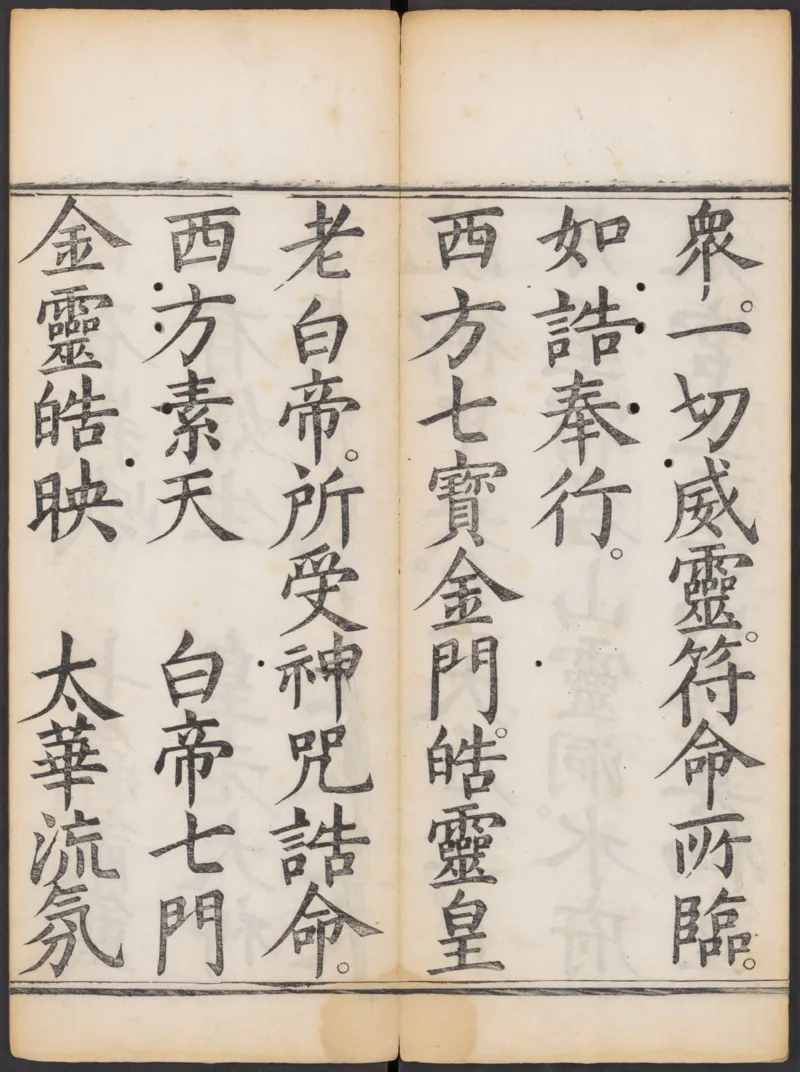 衆。一切威靈。符命所臨。
如誥奉行。
西方七寶金門。皓靈皇
老白帝。所受神咒誥命。
西方素天　白帝七門
金靈皓映　太華流氛